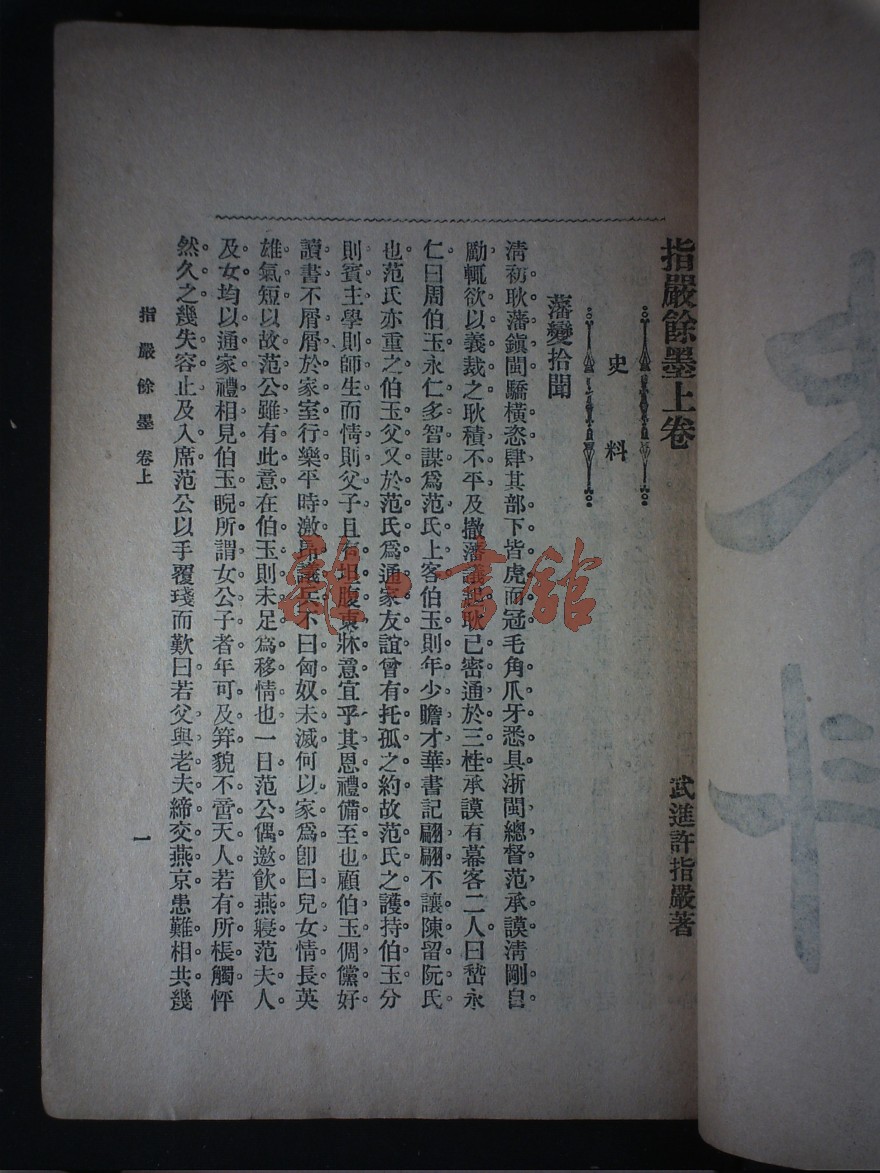 指嚴餘墨上卷
武進許指嚴著
史料
藩變拾聞
清初耿藩鎮閩驕橫恣肆其部下皆虎而冠毛角爪牙悉具浙閩總督范承謨清剛自
勵輒欲以義裁之耿積不平及撤藩議起耿已密通於三桂承謨有幕客二人曰嵇永
仁曰周伯玉永仁多智謀爲范氏上客伯玉則年少贍才華書記翩翩不讓陳留阮氏
也范氏亦重之伯玉父又於范氏爲通家友誼曾有托孤之約故范氏之護持伯玉分
則賓主學則師生而情則父子且有坦腹東牀意宜乎其恩禮備至也顧伯玉倜儻好
讀書不屑屑於家室行樂平時激昂議兵不曰匈奴未滅何以家爲卽曰兒女情長英
雄氣短以故范公雖有此意在伯玉則未足爲移情也一日范公偶邀飮燕寢范夫人
及女均以通家禮相見伯玉睨所謂女公子者年可及笄貌不啻天人若有所棖觸怦
然久之幾失容止及入席范公以手覆琖而歎曰若父與老夫締交燕京患難相共幾
指嚴餘墨 卷上
一
雜·書館